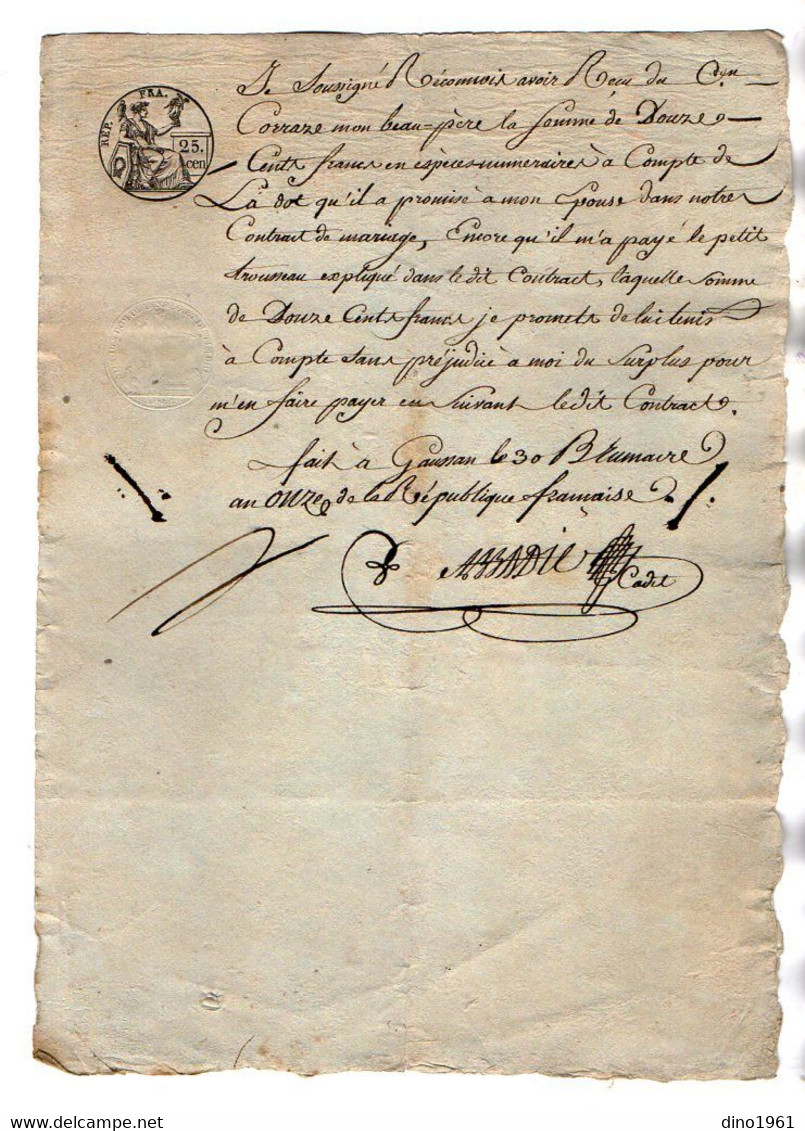 REP. FRA.
25.
cen
Je Soussigné Réconnois avoir Recu du Cyen
Corraze mon beau=père la Somme de Douze
Cents francs en espèces numeraires à Compte de
La dot qu'il a promise à mon Epouse dans notre
Contrat de mariage, Encore qu'il m'a payé le petit
trousseau expliqué dans ledit Contract, laquelle Somme
de Douze Cents francs je promets de lui tenir
à Compte Sans préjudice à moi du Surplus pour
m'en faire payer en Suivant ledit Contract.
fait à Gaussan le 30 Brumaire
an onze de la République francaise.
ABBADIE Cadet
dino1961